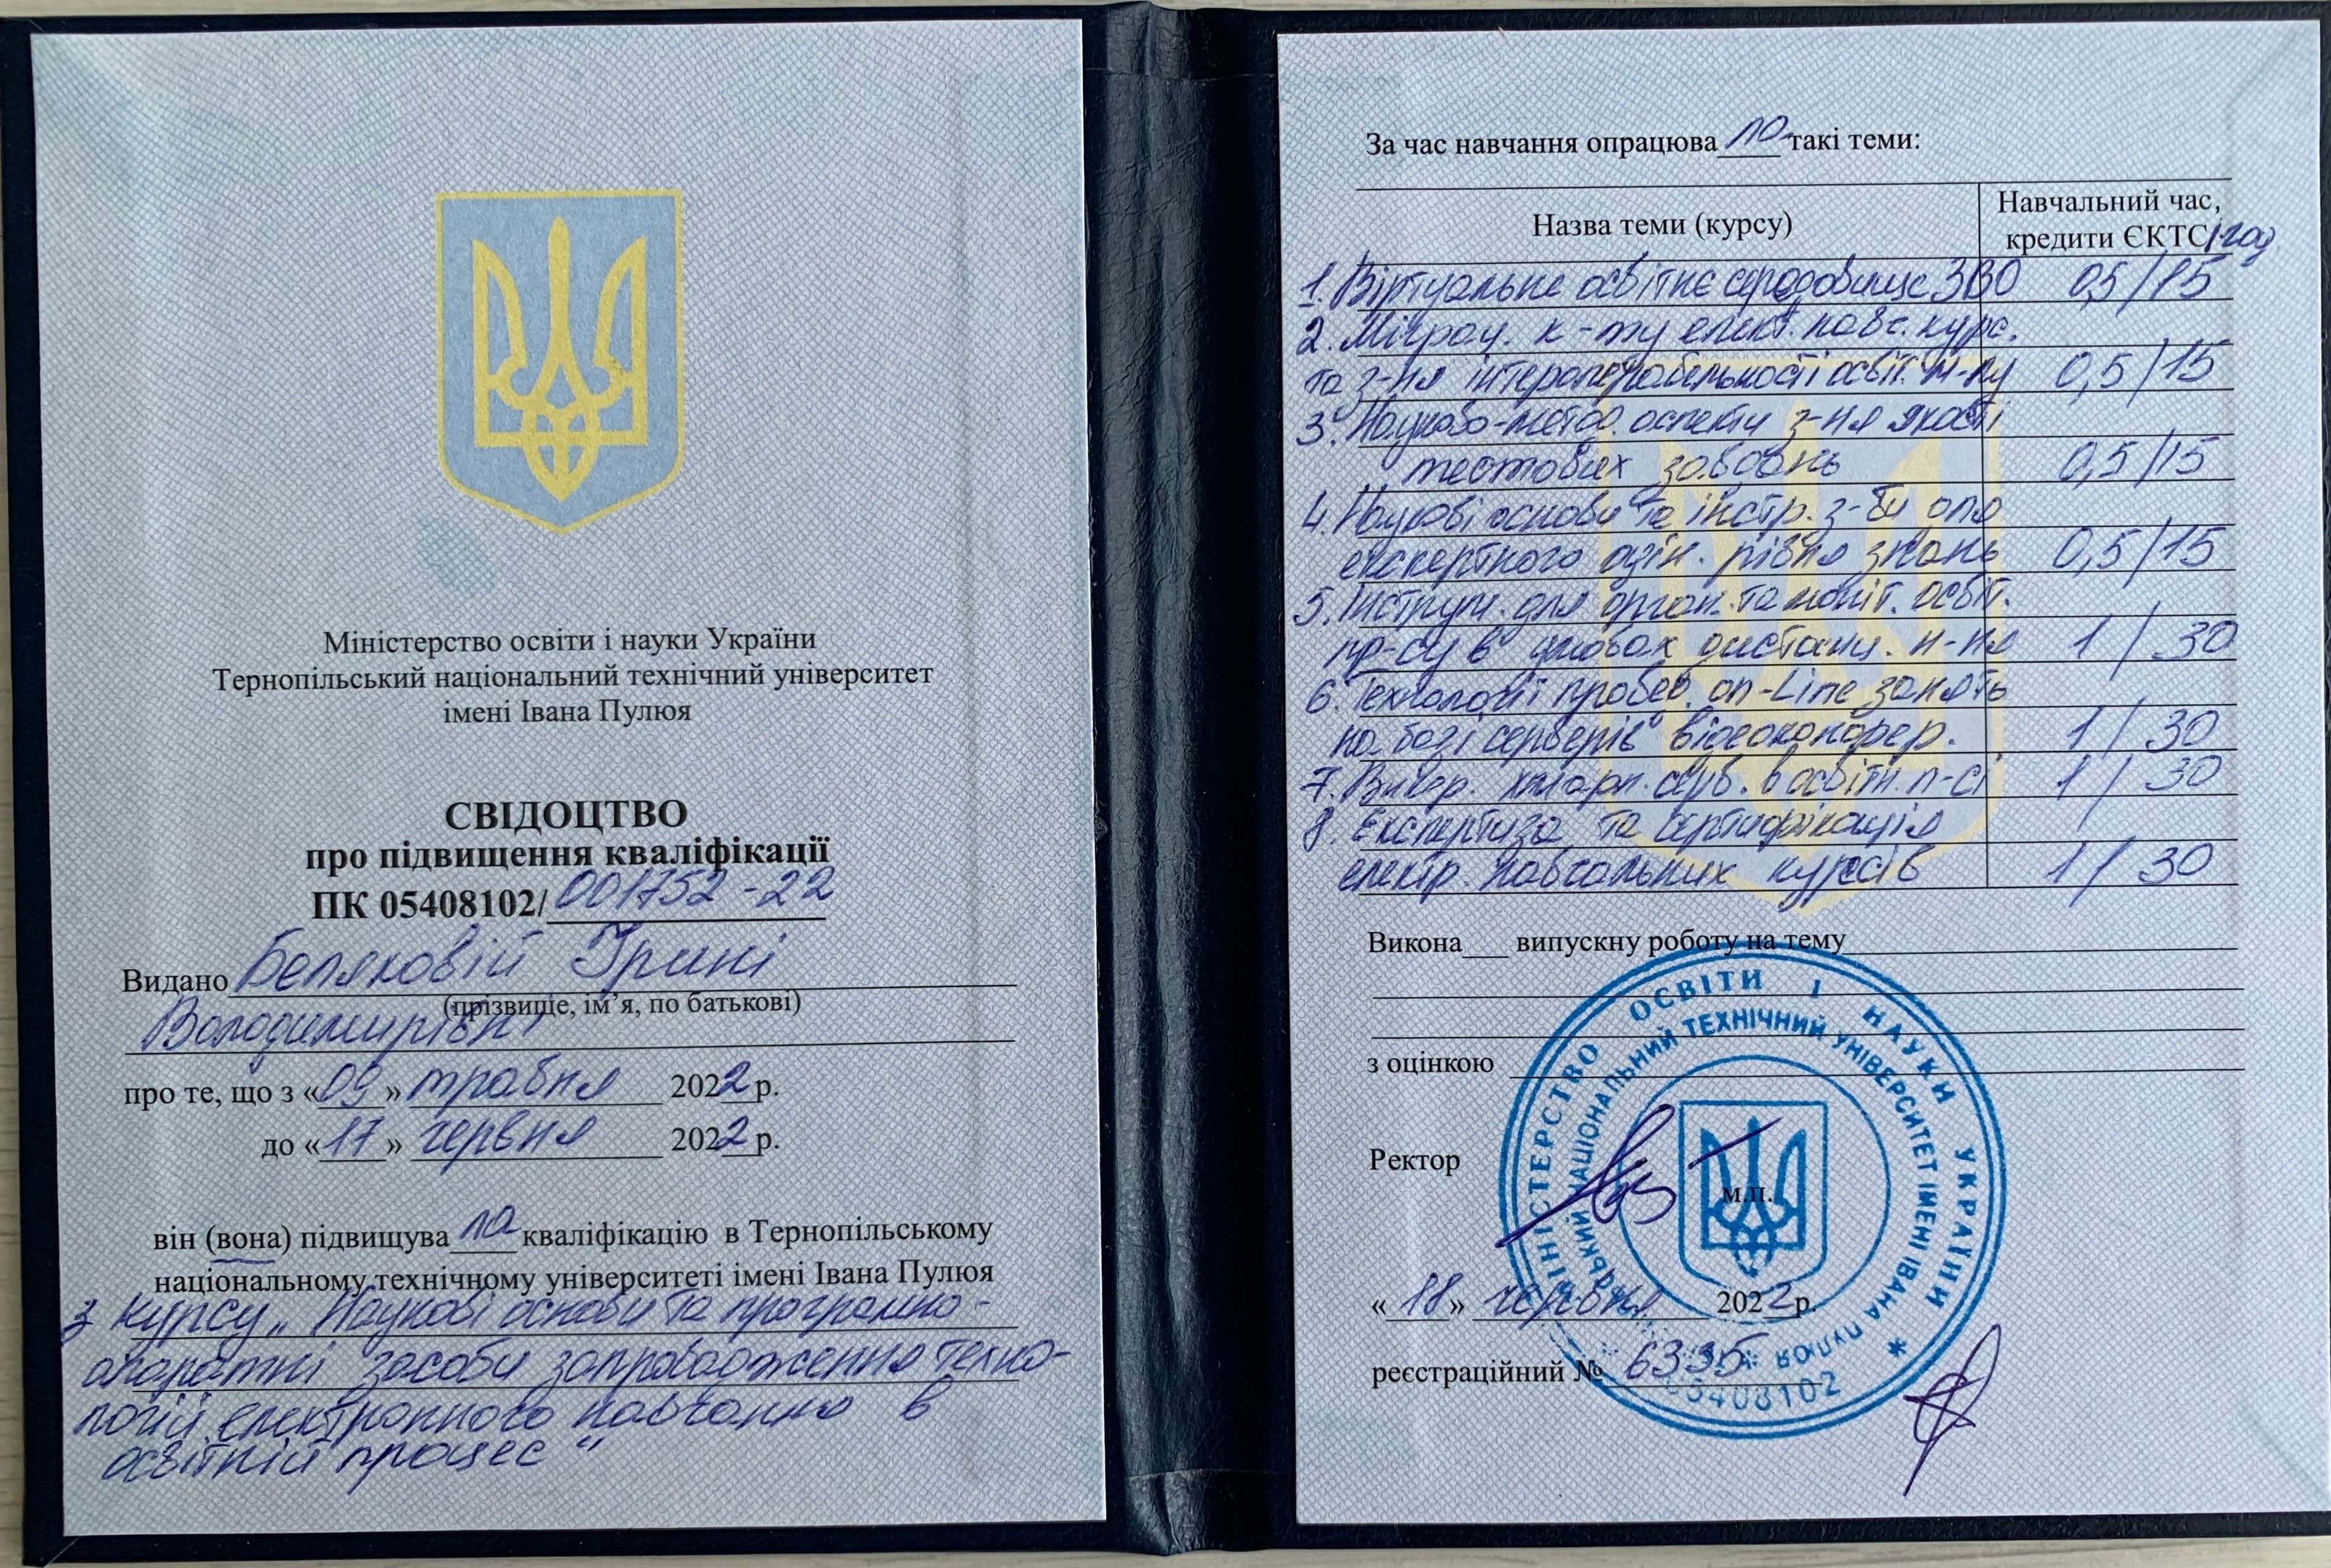 Міністерство освіти і науки України
Тернопільський національний технічний університет
імені Івана Пулюя
СВІДОЦТВО
про підвищення кваліфікації
ПК 05408102/001752-22
Видано Беляковій Ірині
(прізвище, ім’я, по батькові)
Володимирівні
про те, що з «09» травня 2022 р.
до «17» червня 2022 р.
він (вона) підвищувала кваліфікацію в Тернопільському
національному технічному університеті імені Івана Пулюя
з курсу „Наукові основи та програмно-
апаратні засоби запровадження техно-
логій електронного навчання в
освітній процес“
За час навчання опрацювала такі теми:
Назва теми (курсу)
Навчальний час,
кредити ЄКТС/год
1. Віртуальне освітнє середовище ЗВО 0,5/15
2. Міграц. к-ту елект. навч. курс.
та з-ня інтероперабельності освіт. м-лу 0,5/15
3. Науково-метод. аспекти з-ня якості
тестових завдань 0,5/15
4. Наукові основи та інстр. з-би для
експертного оцін. рівня знань 0,5/15
5. Інструм. для орган. та моніт. освіт.
пр-су в умовах дистанц. н-ня 1/30
6. Технології провед. on-Line занять
на базі серверів відеоконфер. 1/30
7. Викор. хмарн. серв. в освітн. п-сі 1/30
8. Експертиза та сертифікація
електр. навчальних курсів 1/30
Викона___ випускну роботу на тему
з оцінкою
Ректор
м.п.
«18» червня 2022 р.
реєстраційний № 6335
МІНІСТЕРСТВО ОСВІТИ І НАУКИ УКРАЇНИ *
НАЦІОНАЛЬНИЙ ТЕХНІЧНИЙ УНІВЕРСИТЕТ ІМЕНІ ІВАНА ПУЛЮЯ
05408102